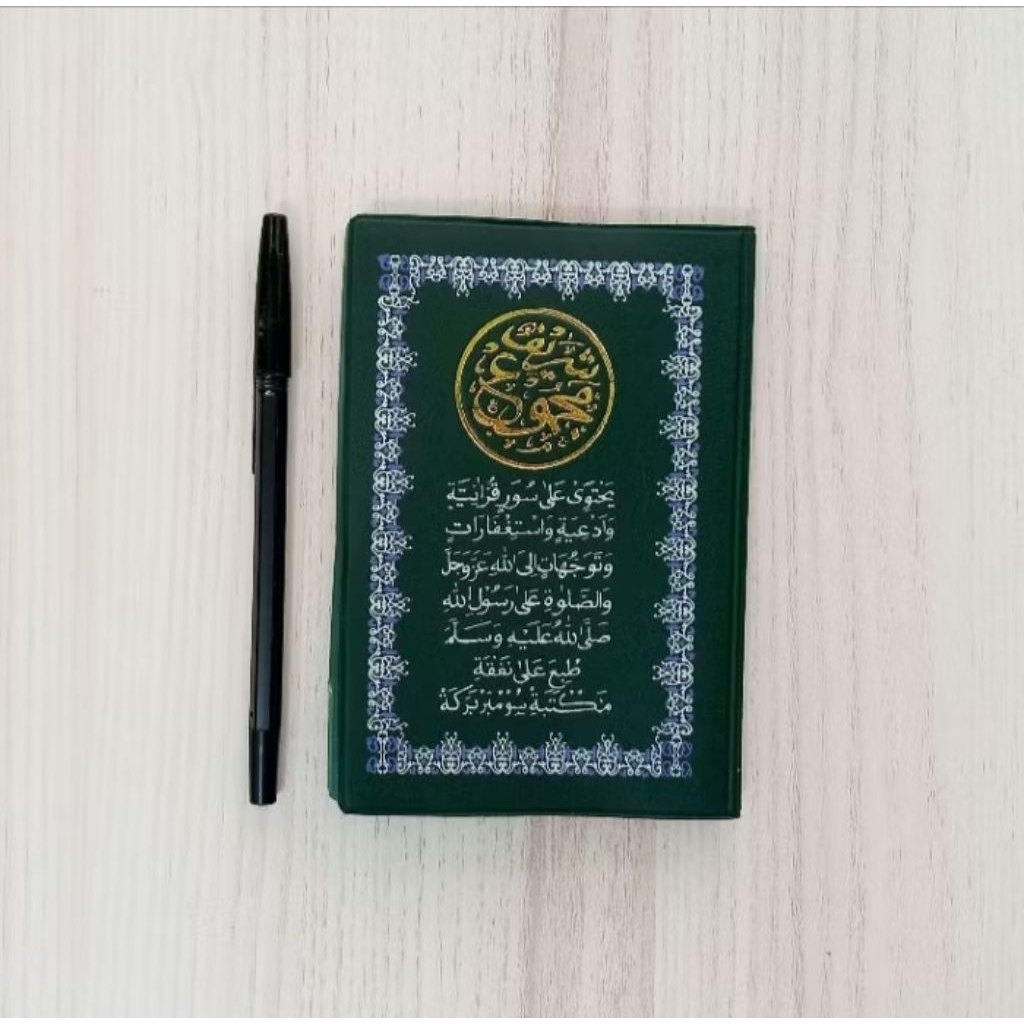 مجموع شريف
يَحْتَوِىْ عَلىٰ سُوَرٍ قُرْاٰنِيَّةٍ
وَاَدْعِيَةٍ وَاسْتِغْفَارَاتٍ
وَتَوَجُّهَاتٍ اِلَى اللهِ عَزَّوَجَلَّ
وَالصَّلٰوةِ عَلىٰ رَسُوْلِ اللهِ
صَلَّى اللهُ عَلَيْهِ وَسَلَّمَ
طُبِعَ عَلىٰ نَفَقَةِ
مَكْتَبَةِ سُوْمْبَرْ بَرَكَةْ